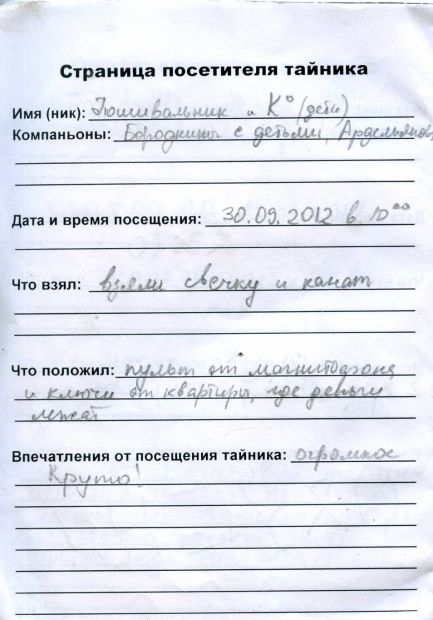 Страница посетителя тайника
Имя (ник): и К° (дети)
Компаньоны: Бороднины с детьми,
Дата и время посещения: 30.09.2012 в 10⁰⁰
Что взял: взяли свечку и канат
Что положил: пульт от магнитофона
и ключи от квартиры, где деньги
лежат
Впечатления от посещения тайника: огромное
Круто!